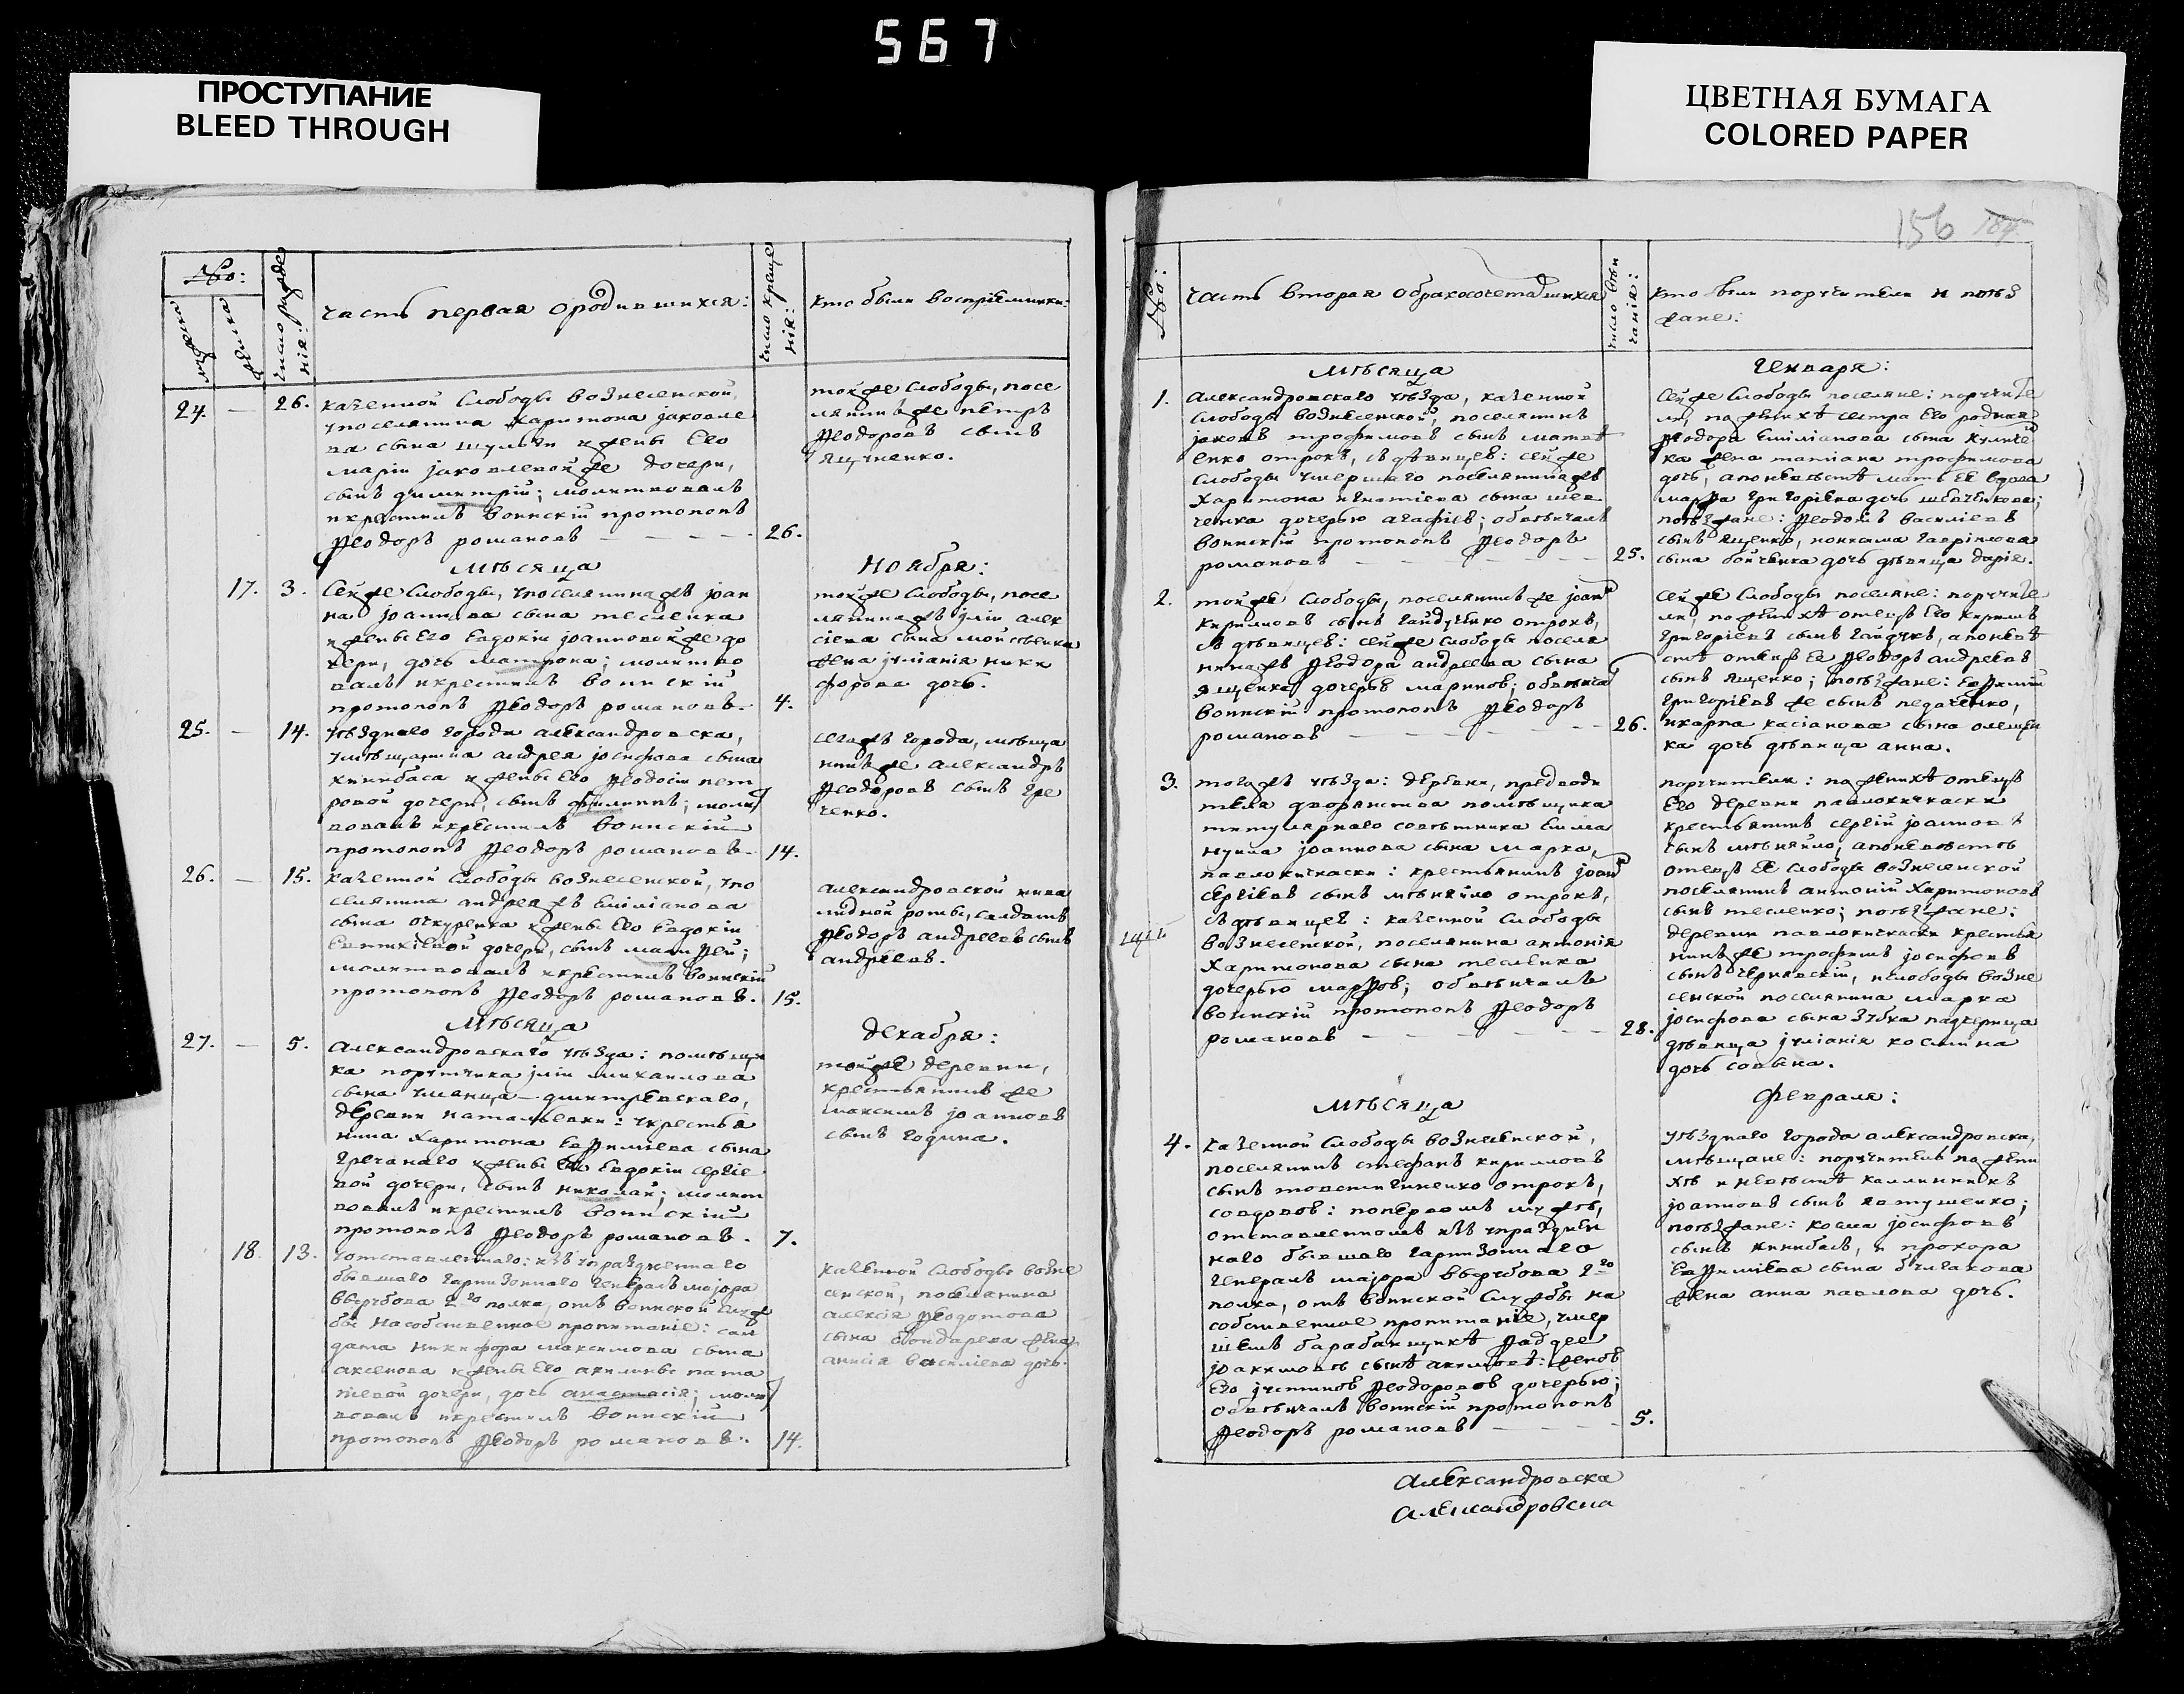 567
ПРОСТУПАНИЕ
BLEED THROUGH
ЦВЕТНАЯ БУМАГА
COLORED PAPER
№:
мужска
женска
число рожде
нія:
часть первая о родившихся:
число креще
нія:
кто были воспріемники:
24. — 26.
казенной слободы вознесенской,
у поселянина харитона јаковле
ва сына шульги и жены его
маріи јаковлевой же дочери,
сынъ димитрій; молитвовалъ
и крестилъ воинскій протопопъ
Ѳеодоръ романовъ — — — — 26.
той же слободы, посе
лянинъ же петръ
Ѳеодоровъ сынъ
Ященко.
Мѣсяца
Ноября:
17. 3.
сей же слободы, у поселянина жъ јоан
на јоаннова сына тесленка
и жены его евдокіи јоанновой же до
чери, дочь матрона; молитво
валъ и крестилъ воинскій
протопопъ Ѳеодоръ романовъ. 4.
той же слободы, посе
лянина жъ іліи алек
сіева сына мойсѣенка
жена јуліанія ники
форова дочь.
25. — 14.
уѣзднаго города александровска,
у мѣщанина андрея јосифова сына
кинибаса и жены его Ѳеодосіи пет
ровой дочери, сынъ филиппъ; молит
вовалъ и крестилъ воинскій
протопопъ Ѳеодоръ романовъ. 14.
сего жъ города, мѣща
нинъ же александръ
Ѳеодоровъ сынъ гре
ченко.
26. — 15.
казенной слободы вознесенской, у по
селянина андрея жъ емиліанова
сына очкуренка и жены его евдокіи
евтихіевой дочери, сынъ матѳей;
молитвовалъ и крестилъ воинскій
протопопъ Ѳеодоръ романовъ. 15.
александровской инва
лидной роты, салдатъ
Ѳеодоръ андреевъ сынъ
андреевъ.
Мѣсяца
декабря:
27. — 5.
александровскаго уѣзда: помѣщи
ка порутчика іліи михаилова
сына уманца — дмитревскаго,
деревни натальевки: у крестья
нина харитона евѳиміева сына
гречанаго и жены его евдокіи сергіе
вой дочери, сынъ николай; молит
вовалъ и крестилъ воинскій
протопопъ Ѳеодоръ романовъ. 7.
той же деревни,
крестьянинъ же
максимъ јоанновъ
сынъ година.
18. 13.
у отставленнаго: изъ упраздненнаго
бывшаго гарнизоннаго генералъ маіора
вырубова 2го полка, отъ воинской служ
бы на собственное пропитаніе: сал
дата никифора максимова сына
аксенова и жены его акилины
дочери, дочь анастасія; молит
вовалъ и крестилъ воинскій
протопопъ Ѳеодоръ романовъ. 14.
казенной слободы возне
сенской, поселянина
алексія Ѳеодотова
сына бондарева жена
анисія василіева дочь.
156
№:
часть вторая о бракосочетавшихся
число вѣн
чанія:
кто были поручители и поѣз
жане:
Мѣсяца
Генваря:
1.
александровскаго уѣзда, казенной
слободы вознесенской, поселянинъ
јаковъ трофимовъ сынъ матвѣ
енко отрокъ, съ дѣвицею: сей же
слободы умершаго поселянина жъ
харитона игнатіева сына шев
ченка дочерью агафіею; обвѣнчалъ
воинскій протопопъ Ѳеодоръ
романовъ — — — — 25.
сей же слободы поселяне: поручите
ли, по женихѣ сестра его родная
Ѳеодора емиліанова сына куличе
ка жена татіана трофимова
дочь, а по невѣстѣ мать ея вдова
марѳа григоріева дочь шевченкова;
поѣзжане: Ѳеодоръ василіевъ
сынъ ященко, и якима гавріилова
сына бойченка дочь дѣвица дарія.
2.
той же слободы, поселянинъ же јоаннъ
кириловъ сынъ гайдученко отрокъ,
съ дѣвицею: сей же слободы поселя
нина жъ Ѳеодора андреева сына
ященка дочерью мариною; обвѣнчалъ
воинскій протопопъ Ѳеодоръ
романовъ — — — — 26.
сей же слободы поселяне: поручите
ли, по женихѣ отецъ его кирилъ
григоріевъ сынъ гайдукъ, а по невѣ
стѣ отецъ ея Ѳеодоръ андреевъ
сынъ ященко; поѣзжане: евѳимій
григоріевъ же сынъ педаченко,
и карпа касіанова сына олещен
ка дочь дѣвица анна.
3.
того жъ уѣзда: деревни, предводи
теля дворянства помѣщика
титулярнаго совѣтника емма
нуила јоаннова сына марка,
павлокичкаски: крестьянинъ јоаннъ
сергіевъ сынъ мѣняйло отрокъ,
съ дѣвицею: казенной слободы
вознесенской, поселянина антонія
харитонова сына тесленка
дочерью марѳою; обвѣнчалъ
воинскій протопопъ Ѳеодоръ
романовъ — — — — 28.
поручители: по женихѣ отецъ
его деревни павлокичкаски
крестьянинъ сергій јоанновъ
сынъ мѣняйло, а по невѣстѣ
отецъ ея слободы вознесенской
поселянинъ антоній харитоновъ
сынъ тесленко; поѣзжане:
деревни павлокичкаски крестья
нинъ же трофимъ јосифовъ
сынъ чернявскій, и слободы возне
сенской поселянина марка
јосифова сына зубка падчерица
дѣвица јуліанія космина
дочь совына.
Мѣсяца
Февраля:
4.
казенной слободы вознесенской,
поселянинъ стефанъ кирилловъ
сынъ товстигиненко отрокъ,
со вдовою: по первомъ мужѣ,
отставленномъ изъ упразднен
наго бывшаго гарнизоннаго
генералъ маіора вырубова 2го
полка, отъ воинской службы на
собственное пропитаніе, умер
шемъ барабанщикѣ Ѳаддеѣ
јоакимовѣ сынѣ акимовѣ: женою
его јустиною Ѳеодоровою дочерью;
обвѣнчалъ воинскій протопопъ
Ѳеодоръ романовъ — — — 5.
уѣзднаго города александровска,
мѣщане: поручитель по жени
хѣ и невѣстѣ каллиникъ
јоанновъ сынъ евтушенко;
поѣзжане: косма јосифовъ
сынъ кинибасъ, и прохора
евѳиміева сына булгакова
жена анна павлова дочь.
Александровска
Александровска